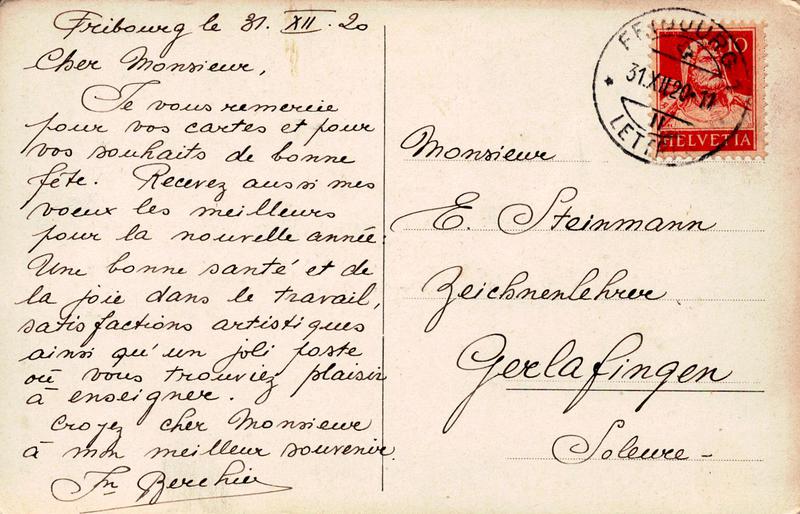 Fribourg le 31. XII. 20
Cher Monsieur,
Je vous remercie
pour vos cartes et pour
vos souhaits de bonne
fête. Recevez aussi mes
voeux les meilleurs
pour la nouvelle année:
Une bonne santé et de
la joie dans le travail,
satisfactions artistiques
ainsi qu'un joli poste
où vous trouviez plaisir
à enseigner.
Croyez cher Monsieur
à mon meilleur souvenir.
Fr Berchier
Monsieur
E. Steinmann
Zeichnenlehrer
Gerlafingen
Soleure -
FRIBOURG 1
31.XII.20-11
LETT
10
HELVETIA